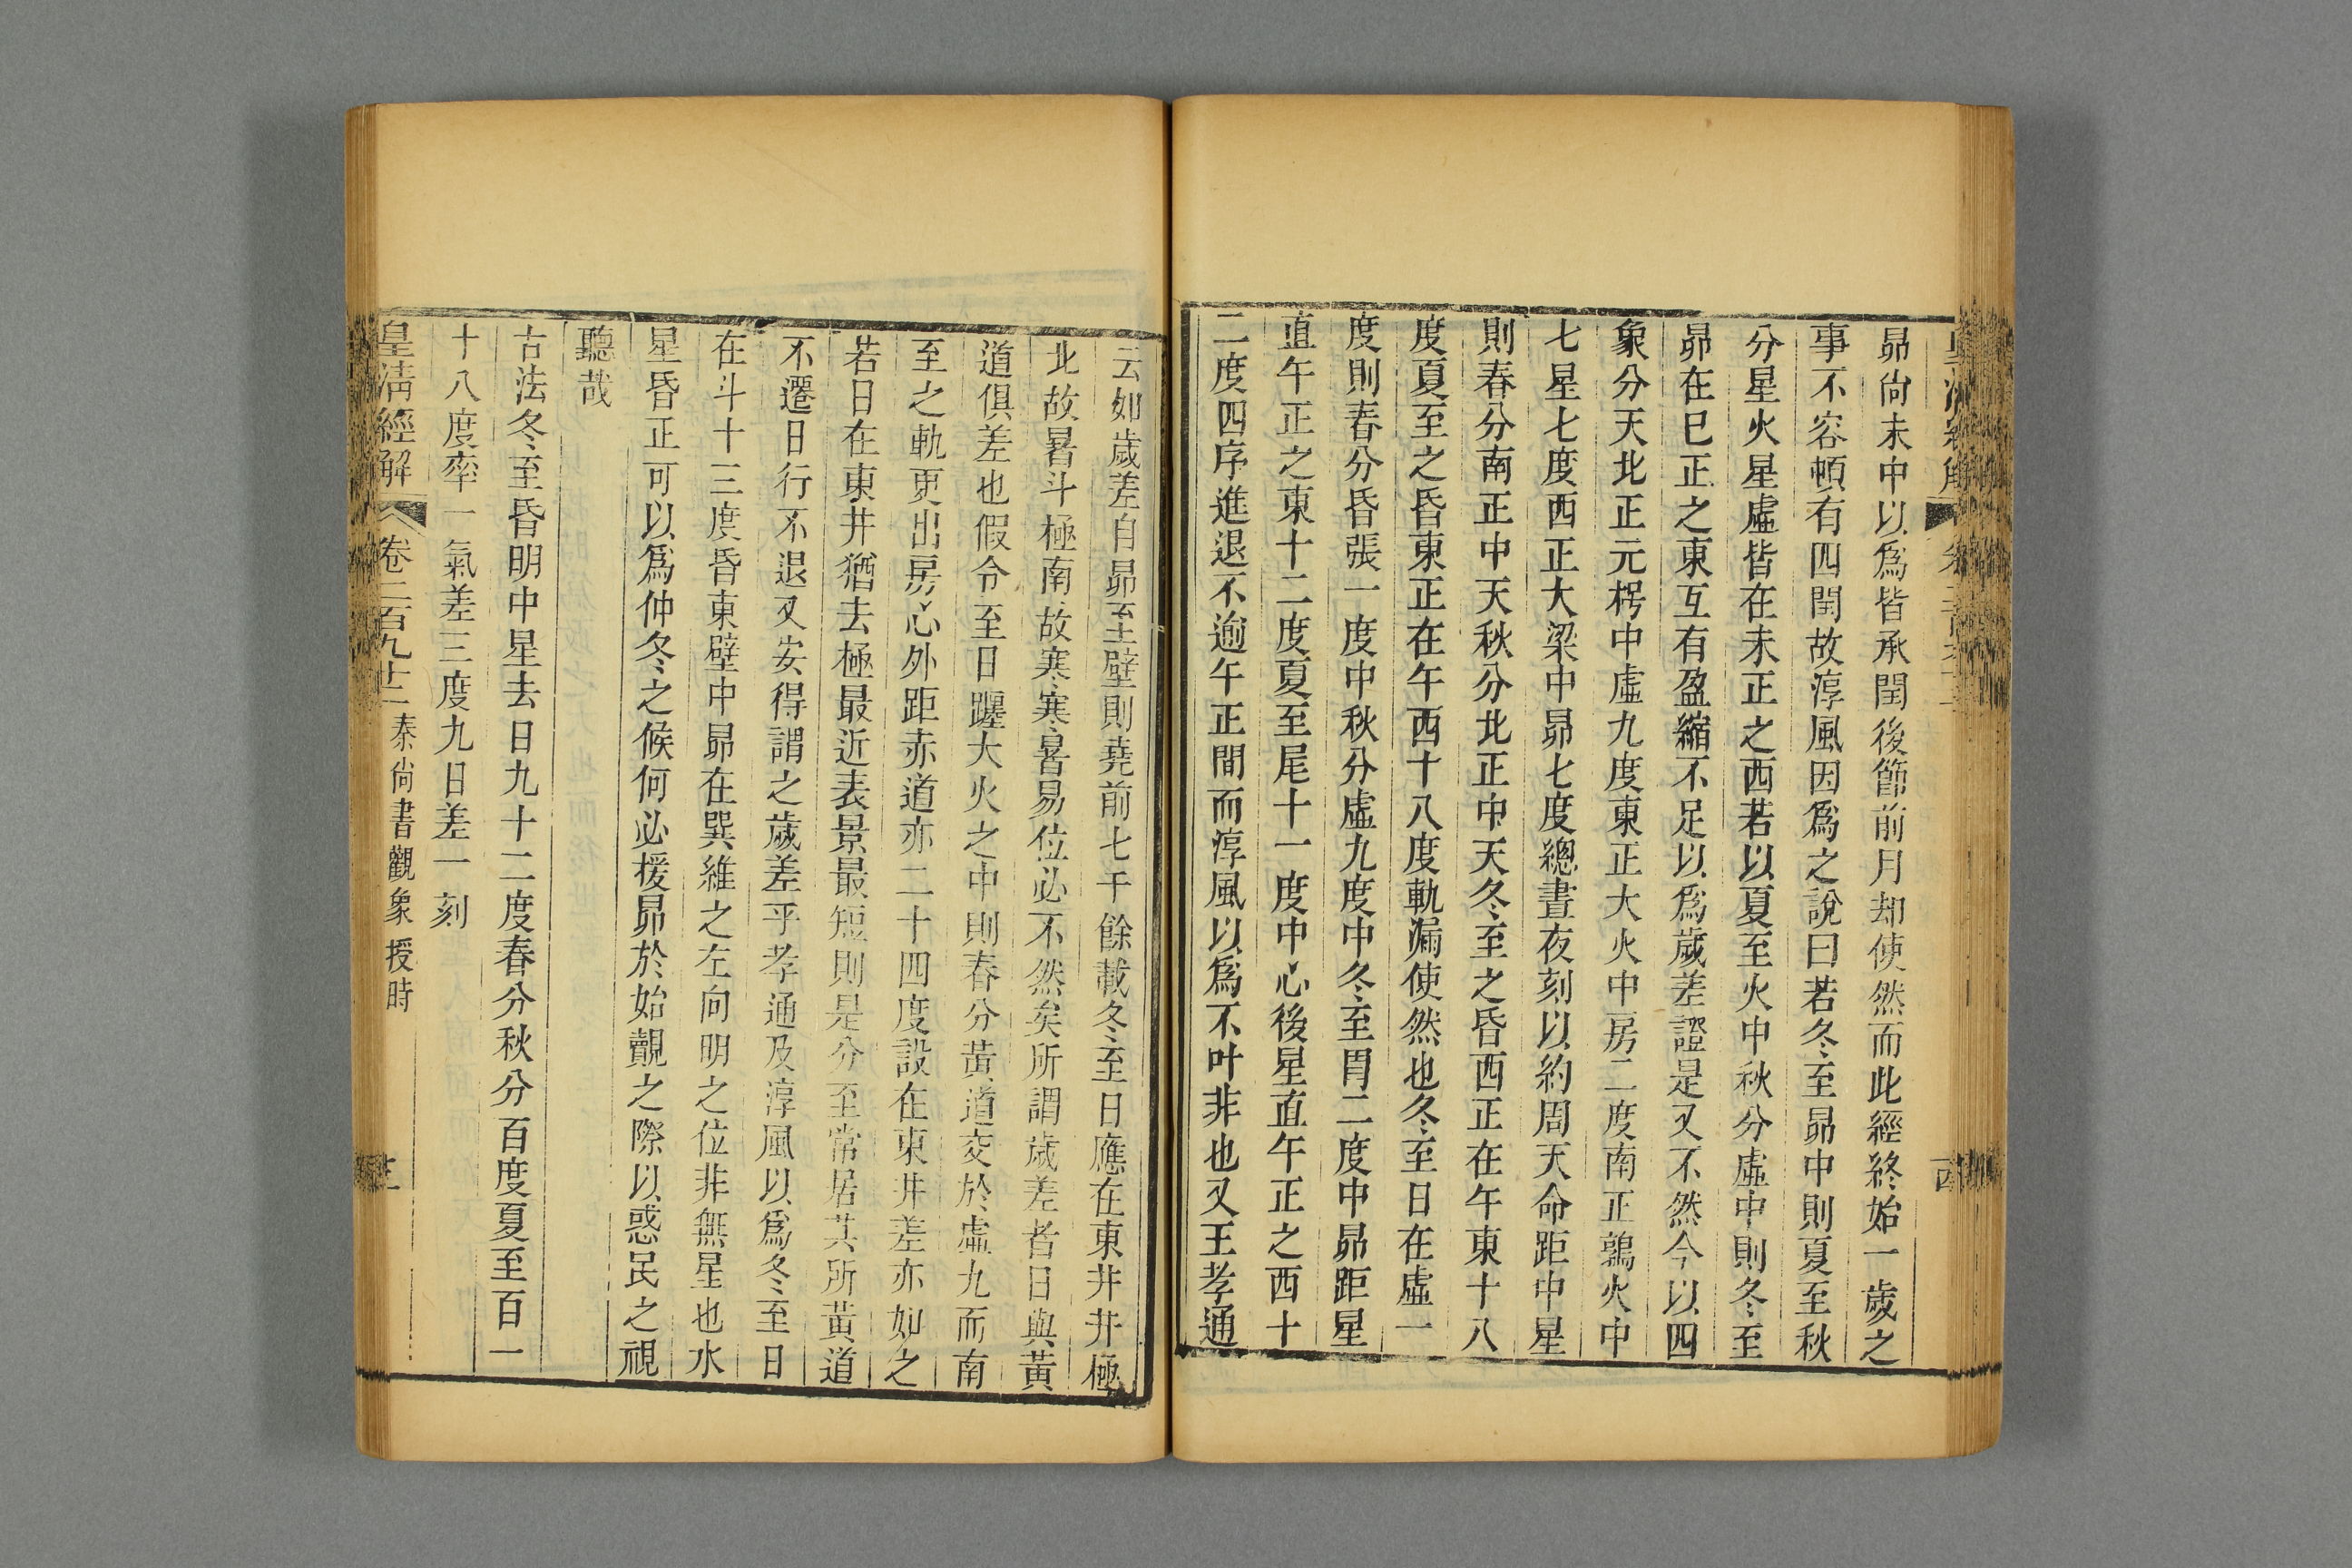 昴尙未中以爲皆承閏後節前月却使然而此經終始一歲之
事不容頓有四閏故淳風因爲之說曰若冬至昴中則夏至秋
分星火星虛皆在未正之西若以夏至火中秋分虛中則冬至
昴在巳正之東互有盈縮不足以爲歲差證是又不然今以四
象分天北正元枵中虛九度東正大火中房二度南正鶉火中
七星七度西正大梁中昴七度總晝夜刻以約周天命距中星
則春分南正中天秋分北正中天冬至之昏西正在午東十八
度夏至之昏東正在午西十八度軌漏使然也冬至日在虛一
度則春分昏張一度中秋分虛九度中冬至胃二度中昴距星
直午正之東十二度夏至尾十一度中心後星直午正之西十
二度四序進退不逾午正間而淳風以爲不叶非也又王孝通
云如歲差自昴至壁則堯前七千餘載冬至日應在東井井極
北故暑斗極南故寒寒暑易位必不然矣所謂歲差者日與黃
道俱差也假令至日躔大火之中則春分黃道交於虛九而南
至之軌更出房心外距赤道亦二十四度設在東井差亦如之
若日在東井猶去極最近表景最短則是分至常居其所黃道
不遷日行不退又安得謂之歲差乎孝通及淳風以爲冬至日
在斗十三度昏東壁中昴在巽維之左向明之位非無星也水
星昏正可以爲仲冬之候何必援昴於始覿之際以惑民之視
聽哉
古法冬至昏明中星去日九十二度春分秋分百度夏至百一
十八度率一氣差三度九日差一刻
皇淸經解 卷二百九十二 秦尙書觀象授時